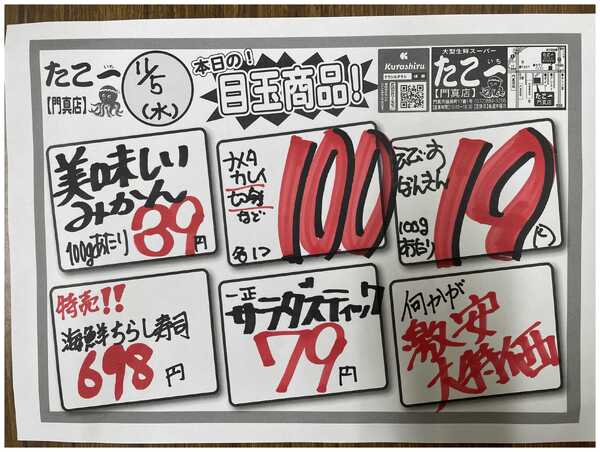 たこ一
いち
【門真店】
11/5
(水)
本日の!
目玉商品!
Kurashiru
大型生鮮スーパー
たこ一
いち
【門真店】
たこ一
門真店
美味しい
みかん
100gあたり 39円
ナメタ
カレイ
切身
など
各1コ
100
なんえん
100g
あたり
19円
特売!!
海鮮ちらし寿司
698円
一正
サラダスティック
79円
何かが
激安
大特価